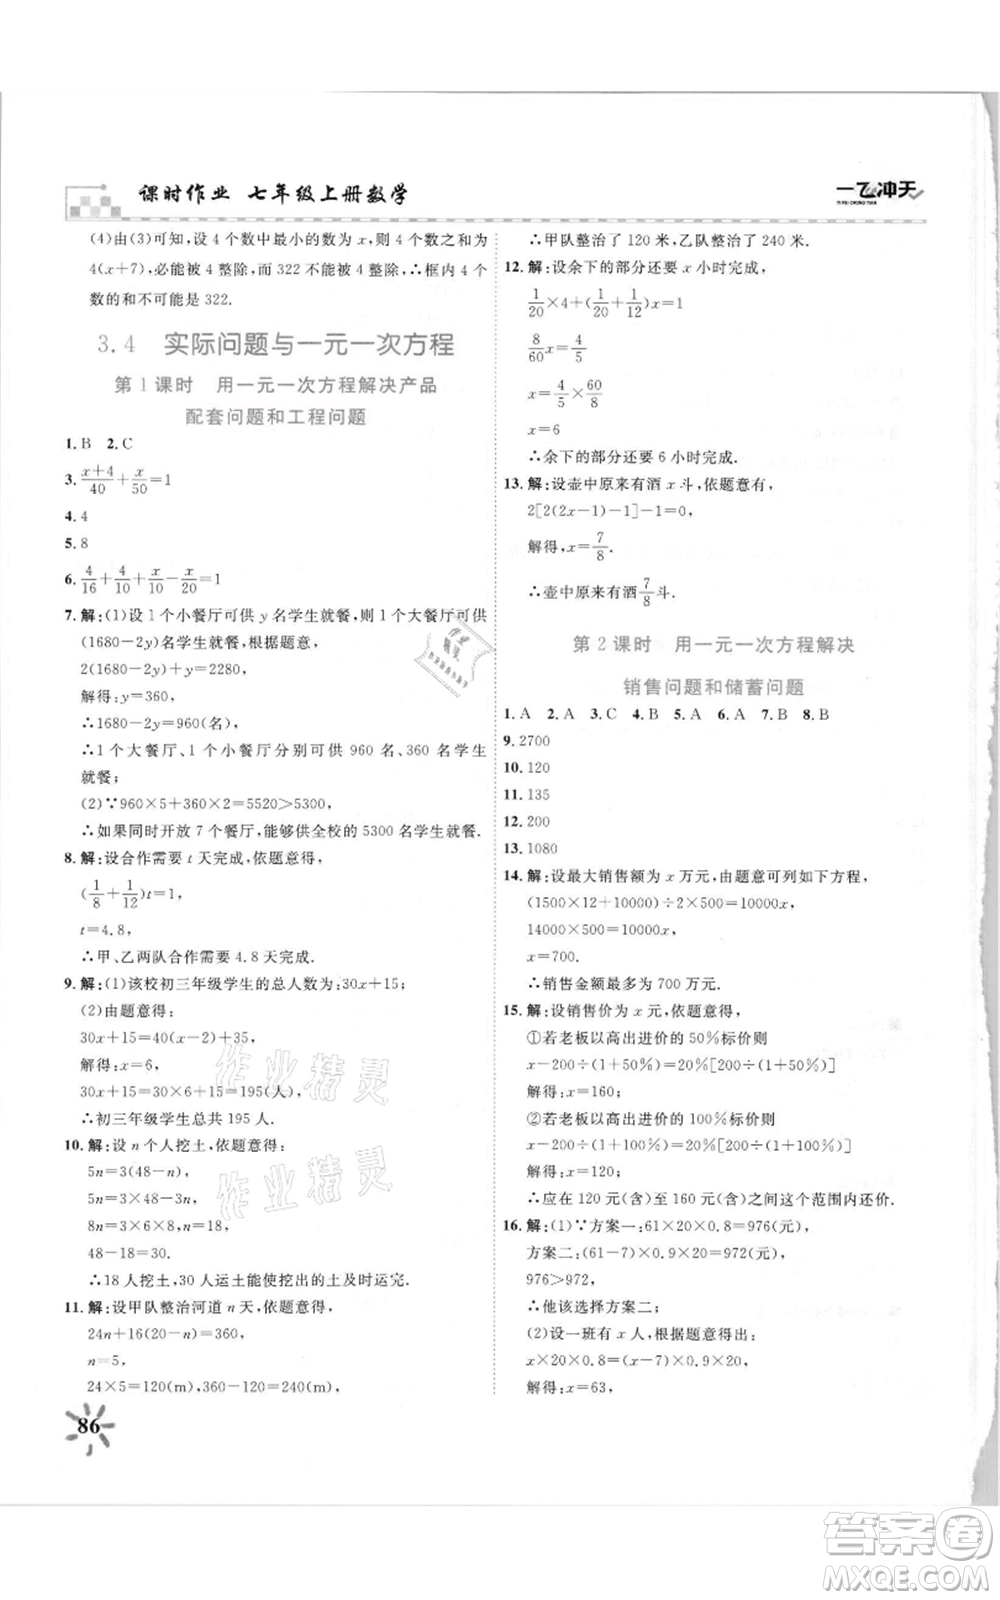 课时作业 七年级上册数学
一飞冲天
YI FEI CHONG TIAN
(4)由(3)可知,设 4 个数中最小的数为 x,则 4 个数之和为
4(x+7),必能被 4 整除,而 322 不能被 4 整除,∴框内 4 个
数的和不可能是 322.
3.4 实际问题与一元一次方程
第 1 课时 用一元一次方程解决产品
配套问题和工程问题
1. B 2. C
3. (x+4)/40+x/50=1
4. 4
5. 8
6. 4/16+4/10+x/10−x/20=1
7. 解:(1)设 1 个小餐厅可供 y 名学生就餐,则 1 个大餐厅可供
(1680-2y)名学生就餐,根据题意,
2(1680-2y)+y=2280,
解得:y=360,
∴1680-2y=960(名),
∴1 个大餐厅、1 个小餐厅分别可供 960 名、360 名学生
就餐;
(2)∵960×5+360×2=5520>5300,
∴如果同时开放 7 个餐厅,能够供全校的 5300 名学生就餐.
8. 解:设合作需要 t 天完成,依题意得,
(1/8+1/12)t=1,
t=4.8,
∴甲、乙两队合作需要 4.8 天完成.
9. 解:(1)该校初三年级学生的总人数为:30x+15,
(2)由题意得,
30x+15=40(x-2)+35,
解得:x=6,
30x+15=30×6+15=195(人),
∴初三年级学生总共 195 人.
10. 解:设 n 个人挖土,依题意得:
5n=3(48-n),
5n=3×48-3n,
8n=3×6×8,n=18,
48-18=30,
∴18 人挖土,30 人运土能使挖出的土及时运完.
11. 解:设甲队整治河道 n 天,依题意得,
24n+16(20-n)=360,
n=5,
24×5=120(m),360-120=240(m),
86
∴甲队整治了 120 米,乙队整治了 240 米.
12. 解:设余下的部分还要 x 小时完成,
1/20×4+(1/20+1/12)x=1
8/60x=4/5
x=4/5×60/8
x=6
∴余下的部分还要 6 小时完成.
13. 解:设壶中原来有酒 x 斗,依题意有,
2[2(2x-1)-1]-1=0,
解得,x=7/8.
∴壶中原来有酒7/8斗.
第 2 课时 用一元一次方程解决
销售问题和储蓄问题
1. A 2. A 3. C 4. B 5. A 6. A 7. B 8. B
9. 2700
10. 120
11. 135
12. 200
13. 1080
14. 解:设最大销售额为 x 万元,由题意可列如下方程,
(1500×12+10000)÷2×500=10000x,
14000×500=10000x,
x=700.
∴销售金额最多为 700 万元.
15. 解:设销售价为 x 元,依题意得,
①若老板以高出进价的 50%标价则
x-200÷(1+50%)=20%[200÷(1+50%)]
解得:x=160;
②若老板以高出进价的 100%标价则
x-200÷(1+100%)=20%[200÷(1+100%)]
解得:x=120;
∴应在 120 元(含)至 160 元(含)之间这个范围内还价.
16. 解:(1)∵方案一:61×20×0.8=976(元),
方案二:(61-7)×20×0.9=972(元),
976>972,
∴他该选择方案二;
(2)设一班有 x 人,根据题意得出:
x×20×0.8=(x-7)×20×0.9,
解得:x=63,
作业精灵
作业精灵
作业精灵
答案卷